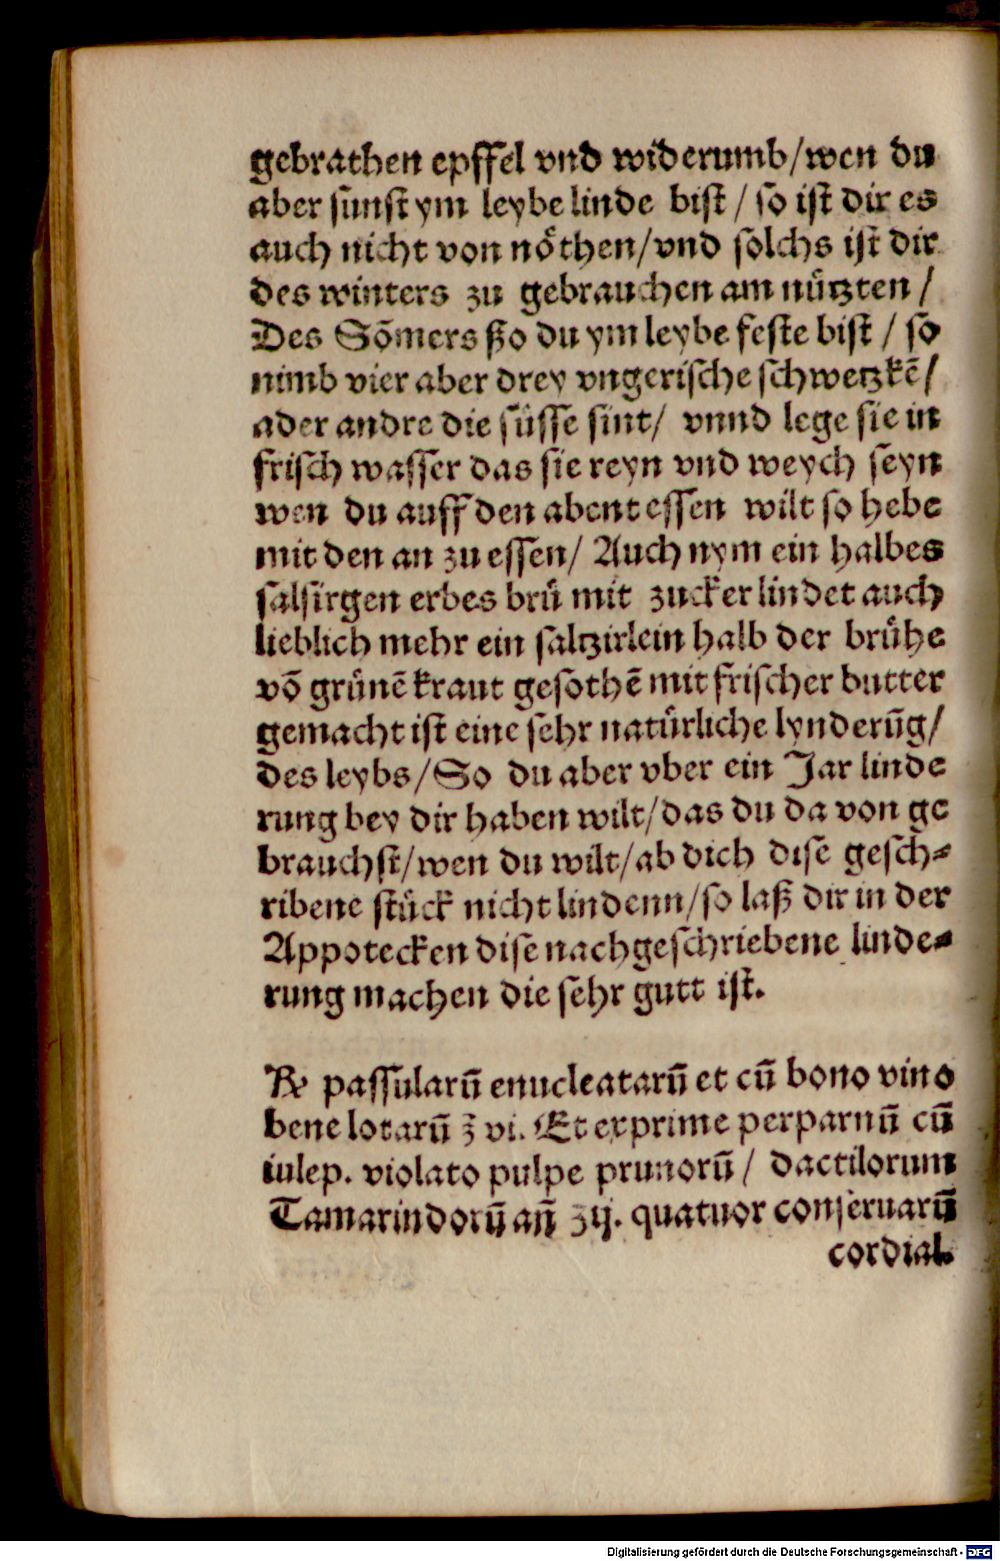 gebrathen epffel vnd widerumb/wen du
aber sunst ym leybe linde bist / so ist dir es
auch nicht von nöthen/vnd solchs ist dir
des winters zu gebrauchen am nützten /
Des Sõmers ßo du ym leybe feste bist / so
nimb vier aber drey vngerische schwetzkē/
ader andre die süsse sint/ vnnd lege sie in
frisch wasser das sie reyn vnd weych seyn
wen du auff den abent essen wilt so hebe
mit den an zu essen/ Auch nym ein halbes
salsirgen erbes brü mit zucker lindet auch
lieblich mehr ein saltzirlein halb der brühe
võ grünē kraut gesothē mit frischer butter
gemacht ist eine sehr natürliche lynderũg/
des leybs/So du aber vber ein Jar linde
rung bey dir haben wilt/das du da von ge
brauchst/wen du wilt/ab dich dise gesch⸗
ribene stück nicht lindenn/so laß dir in der
Appotecken dise nachgeschriebene linde⸗
rung machen die sehr gutt ist.
℞ passularũ enucleatarũ et cũ bono vino
bene lotarũ ℥ vi. Et exprime perparnũ cũ
iulep. violato pulpe prunorũ / dactilorum
Tamarindorũ añ ʒij. quatuor conseruarũ
cordial.
Digitalisierung gefördert durch die Deutsche Forschungsgemeinschaft - DFG